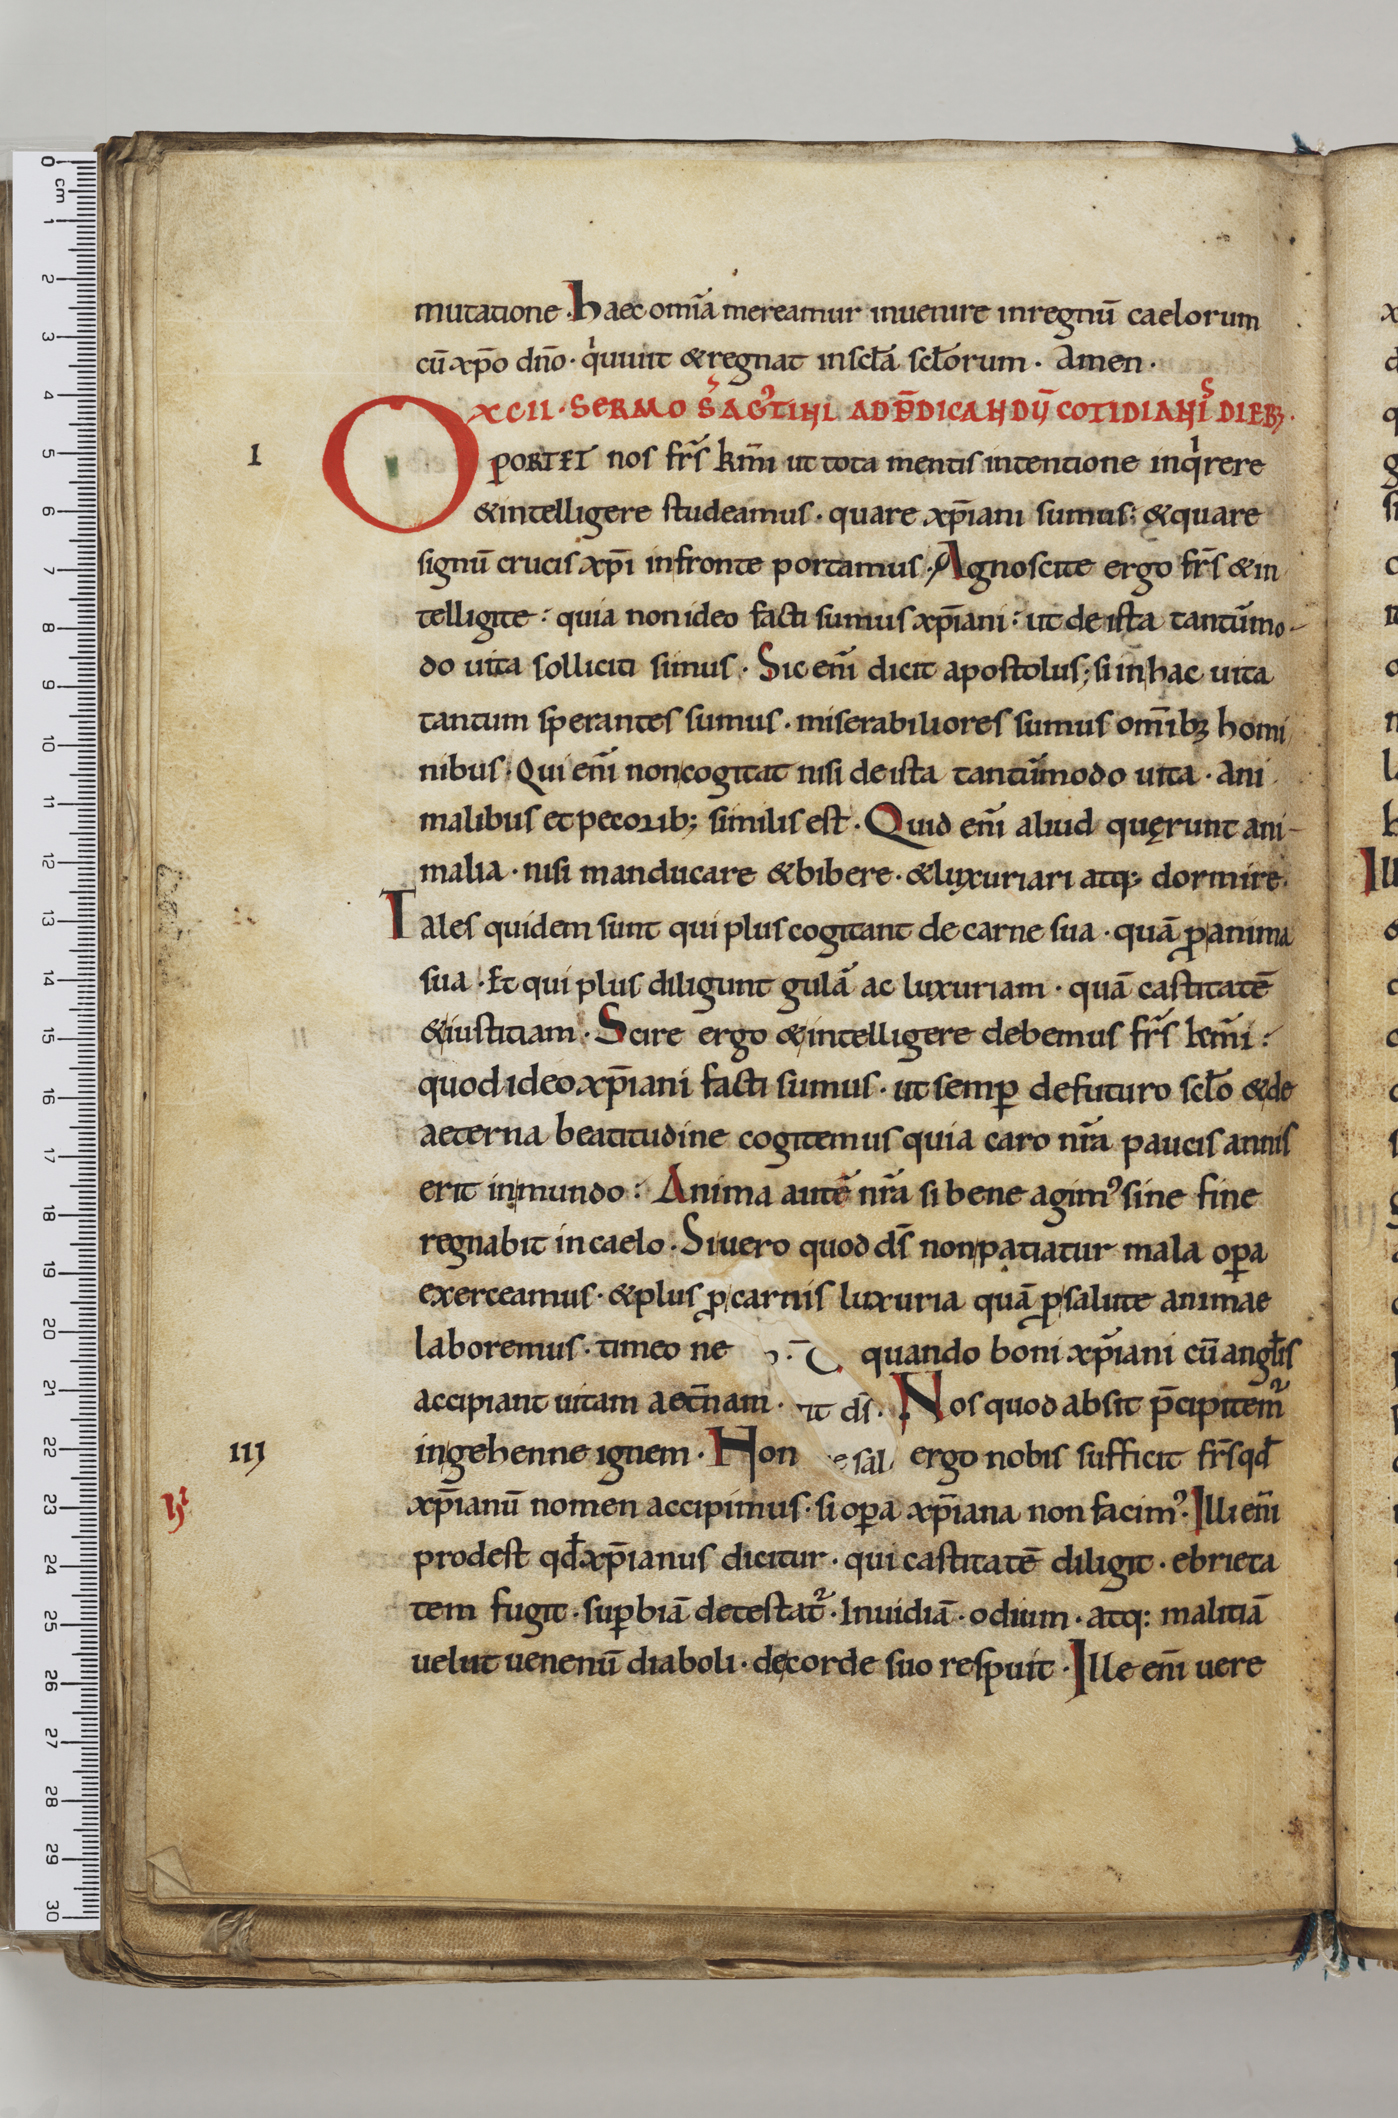 mutatione. Haec om̅ia mereamur inuenire in regnu̅ caelorum
cu̅ xp̅o dn̅o. qͥ uiuit & regnat in scl̅a scl̅orum. Amen.
XCII. SERMO S̅ AGͧTINI AD P̅DICANDU̅ COTIDIANIS DIEBꝫ.
I
OPORTET nos fr̅s km̅i ut tota mentis intentione inqͥrere
& intelligere studeamus. quare xp̅iani sumus; & quare
signu̅ crucis xp̅i in fronte portamus. Agnoscite ergo fr̅s & in
telligite: quia non ideo facti sumus xp̅iani: ut de ista tantu̅mo-
do uita solliciti simus. Sic eni̅ dicit apostolus; si in hac uita
tantum sperantes sumus. miserabiliores sumus om̅ibꝫ homi
nibus. Qui eni̅ non cogitat nisi de ista tantu̅modo uita. Ani
malibus et pecorib; similis est. Quid eni̅ aliud quęrunt ani-
malia. nisi manducare & bibere. & luxuriari atq; dormire.
Tales quidem sunt qui plus cogitant de carne sua. qua̅ ꝓ anima
sua. Et qui plus diligunt gula̅ ac luxuriam. qua̅ castitate̅
& iustitiam. Scire ergo & intelligere debemus fr̅s km̅i:
quod ideo xp̅iani facti sumus. ut semꝑ de futuro scl̅o & de
aeterna beatitudine cogitemus quia caro nr̅a paucis annis
erit in mundo: Anima aute̅ nr̅a si bene agimꝰ sine fine
regnabit in caelo. Si uero quod ds̅ non patiatur mala oꝑa
exerceamus. & plus ꝓ carnis luxuria qua̅ ꝓ salute animae
laboremus. timeo ne quando boni xp̅iani cu̅ angl̅is
accipiant uitam aet̅nam. ut ds̅. Nos quod absit p̅cipitem᷑
III
in gehenne ignem. Non e sal ergo nobis sufficit fr̅s qđ
xp̅ianu̅ nomen accipimus. si oꝑa xp̅iana non facimꝰ. Illi eni̅
prodest qđ xp̅ianus dicitur. qui castitate̅ diligit. ebrieta
tem fugit. suꝑbia̅ detestat᷑. Inuidia̅. odium. atq: malitia̅
uelut uenenu̅ diaboli. de corde suo respuit. Ille eni̅ uere